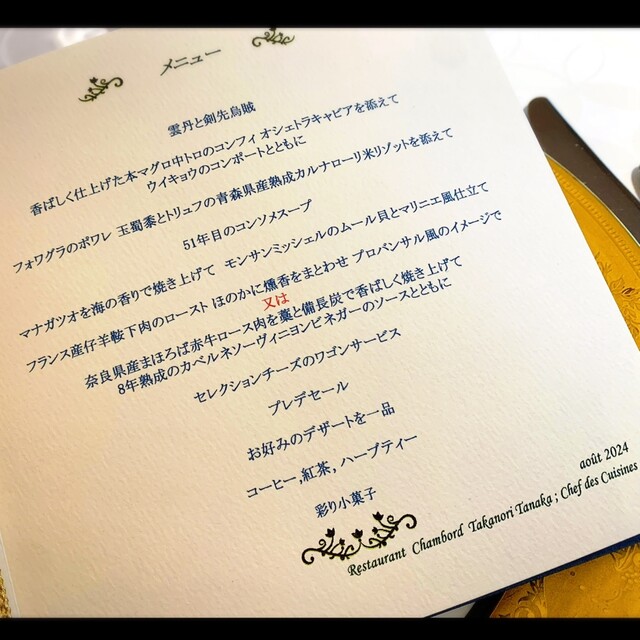 メニュー
雲丹と剣先烏賊
香ばしく仕上げた本マグロ中トロのコンフィ オシェトラキャビアを添えて
ウイキョウのコンポートとともに
フォワグラのポワレ 玉蜀黍とトリュフの青森県産熟成カルナローリ米リゾットを添えて
51年目のコンソメスープ
マナガツオを海の香りで焼き上げて モンサンミッシェルのムール貝とマリニエ風仕立て
フランス産仔羊鞍下肉のロースト ほのかに燻香をまとわせ プロバンサル風のイメージで
又は
奈良県産まほろば赤牛ロース肉を藁と備長炭で香ばしく焼き上げて
8年熟成のカベルネソーヴィニヨンビネガーのソースとともに
セレクションチーズのワゴンサービス
プレデセール
お好みのデザートを一品
コーヒー,紅茶, ハーブティー
彩り小菓子
août 2024
Restaurant Chambord Takanori Tanaka ; Chef des Cuisines